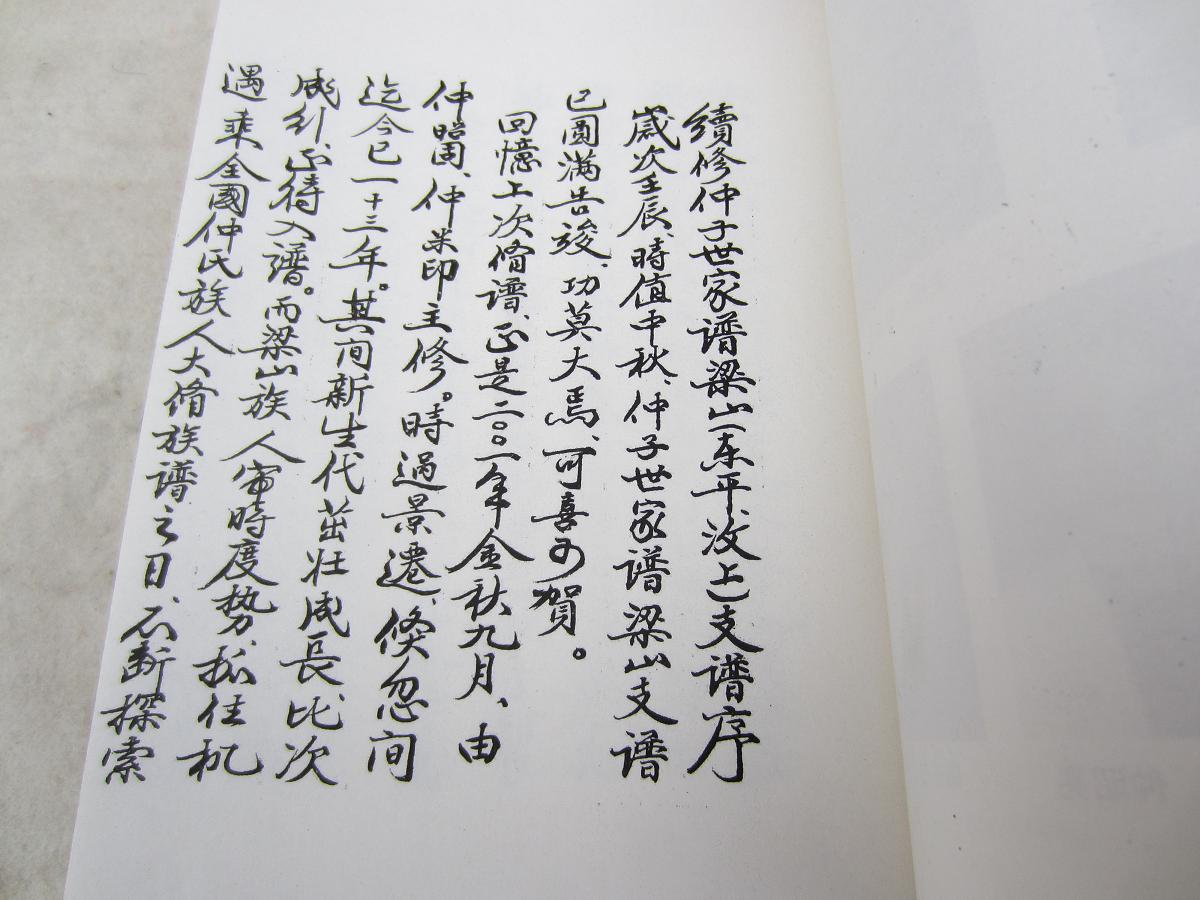 續修仲子世家谱梁山(东平、汶上)支谱序
歲次壬辰、時值中秋、仲子世家谱梁山支谱
已圆满告竣、功莫大焉、可喜可贺。
回憶上次脩谱、正是二〇〇一年金秋九月、由
仲昭固、仲米印主修。時過景遷、倏忽间
迄今已一十三年。其间新生代茁壮成長、比次
成列、正待入谱。而梁山族人审時度势、抓住机
遇乘全國仲氏族人大脩族谱之日、不断探索